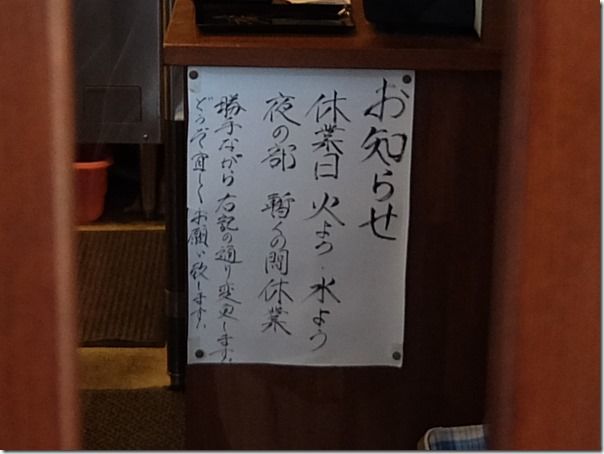 お知らせ
休業日 火よう・水よう
夜の部 暫くの間休業
勝手ながら右記の通り変更します。
どうぞ宜しくお願い致します。